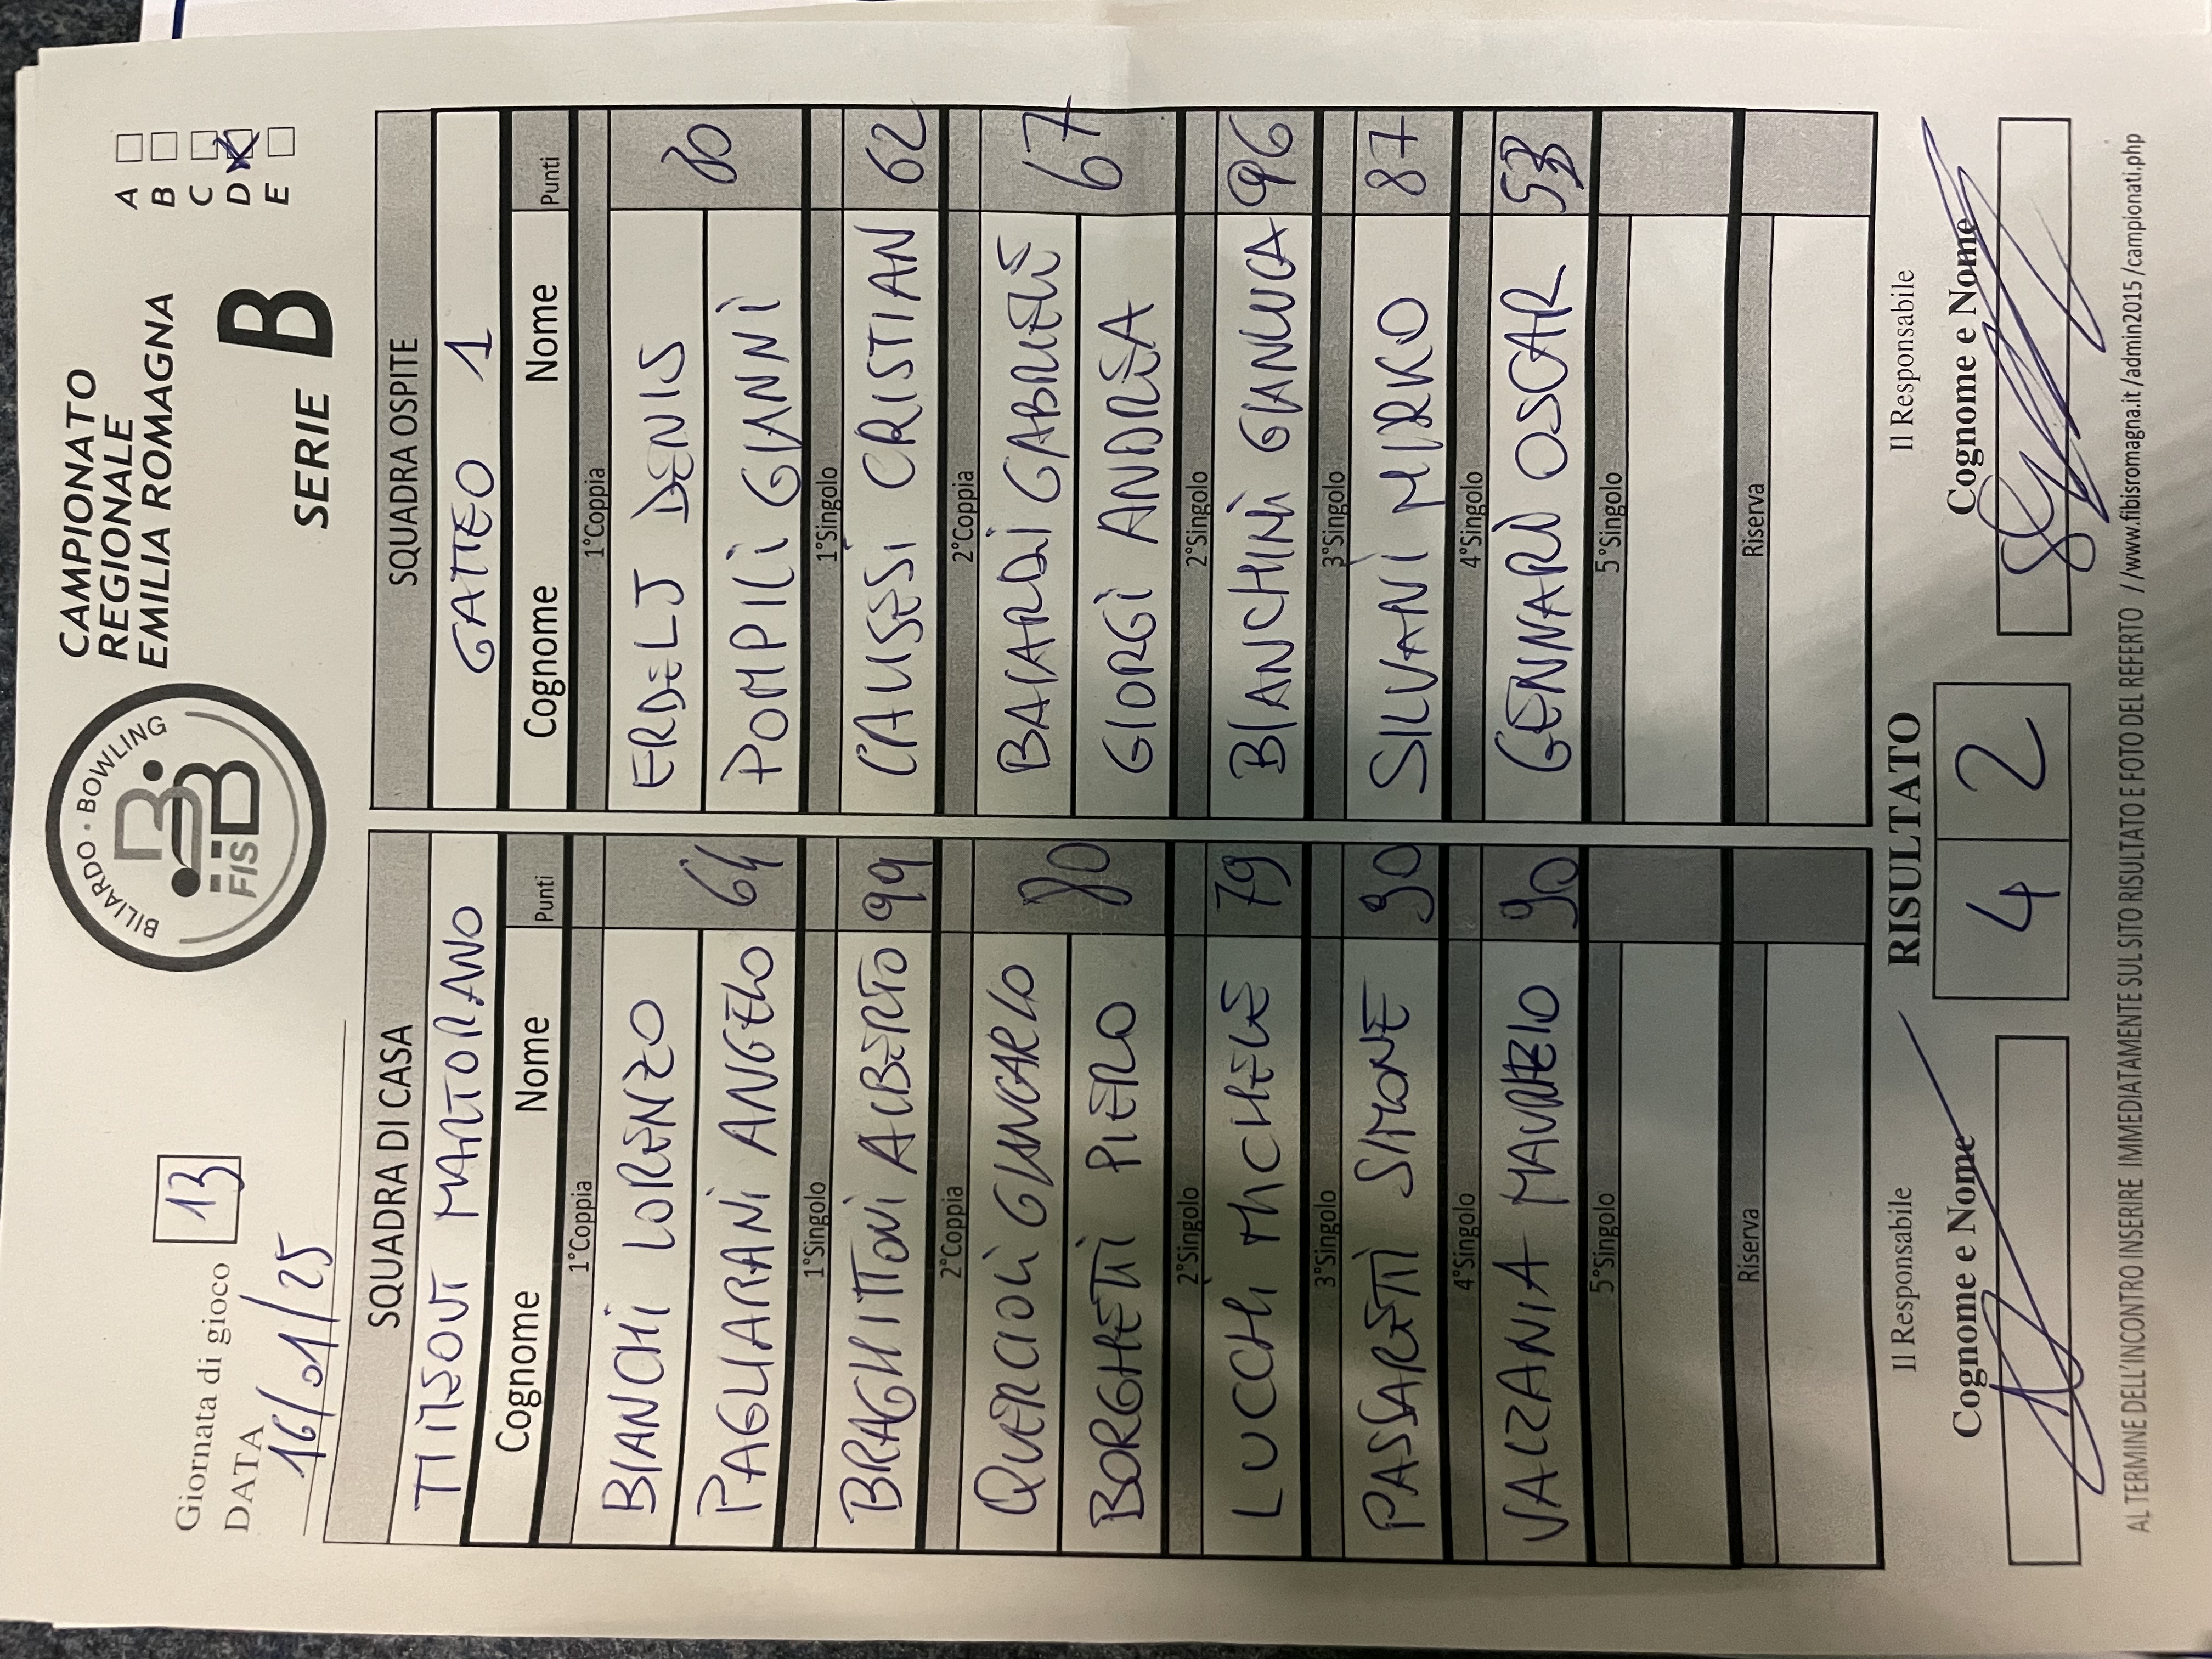 Giornata di gioco 13
DATA
16/01/25
BILIARDO · BOWLING
FISBB
CAMPIONATO
REGIONALE
EMILIA ROMAGNA
SERIE B
A
B
C
D X
E
SQUADRA DI CASA SQUADRA OSPITE
MARTORANO GATTEO 1
Cognome Nome Punti Cognome Nome Punti
1°Coppia 1°Coppia
BIANCHI LORENZO ERDELJ DENIS
PAGLIARANI ANGELO 64 POMPILI GIANNI 80
1°Singolo 1°Singolo
BRAGHITTONI ALBERTO 99 CAUSESI CRISTIAN 62
2°Coppia 2°Coppia
QUERCIOLI GIANCARLO BAIARDI GABRIELE
BORGHETTI PIERO 80 GIORGI ANDREA 67
2°Singolo 2°Singolo
LUCCHI MICHELE 79 BIANCHINI GIANLUCA 96
3°Singolo 3°Singolo
PASSARETTI SIMONE 90 SILVANI MIRKO 87
4°Singolo 4°Singolo
VALZANIA MAURIZIO 90 GENNARI OSCAR 53
5°Singolo 5°Singolo
Riserva Riserva
Il Responsabile RISULTATO Il Responsabile
Cognome e Nome 4 2 Cognome e Nome
AL TERMINE DELL'INCONTRO INSERIRE IMMEDIATAMENTE SUL SITO RISULTATO E FOTO DEL REFERTO //www.fibisromagna.it/admin2015/campionati.php